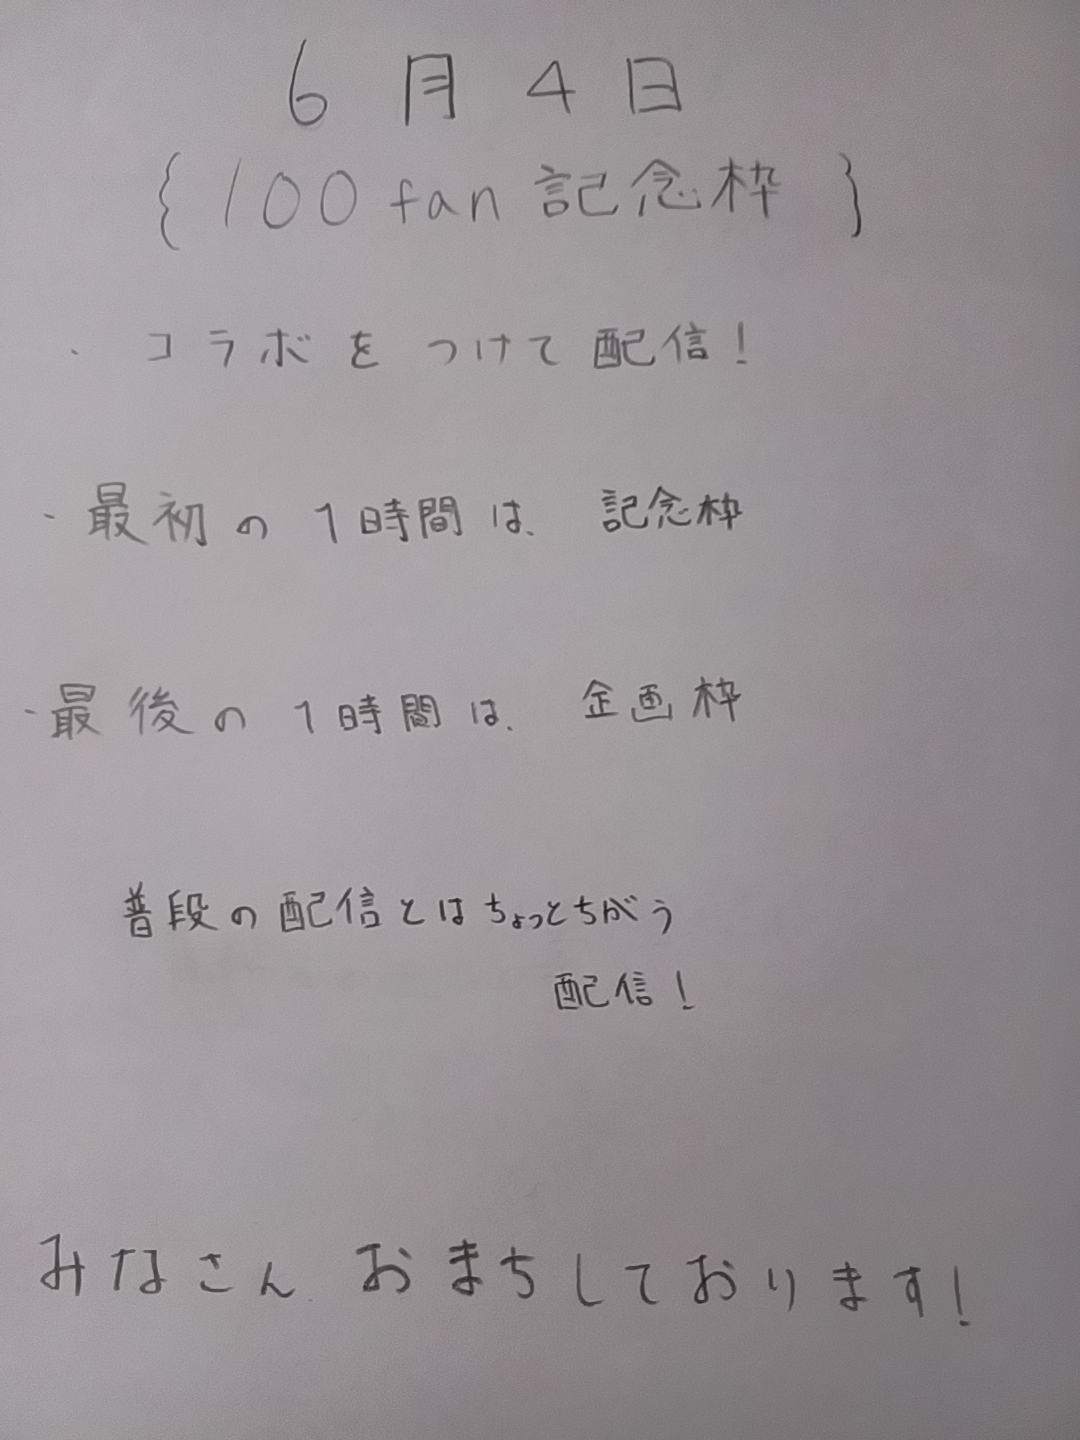 6月4日
{100fan記念枠}
・コラボをつけて配信!
・最初の1時間は、記念枠
・最後の1時間は、企画枠
普段の配信とはちょっとちがう
配信!
みなさん、おまちしております!